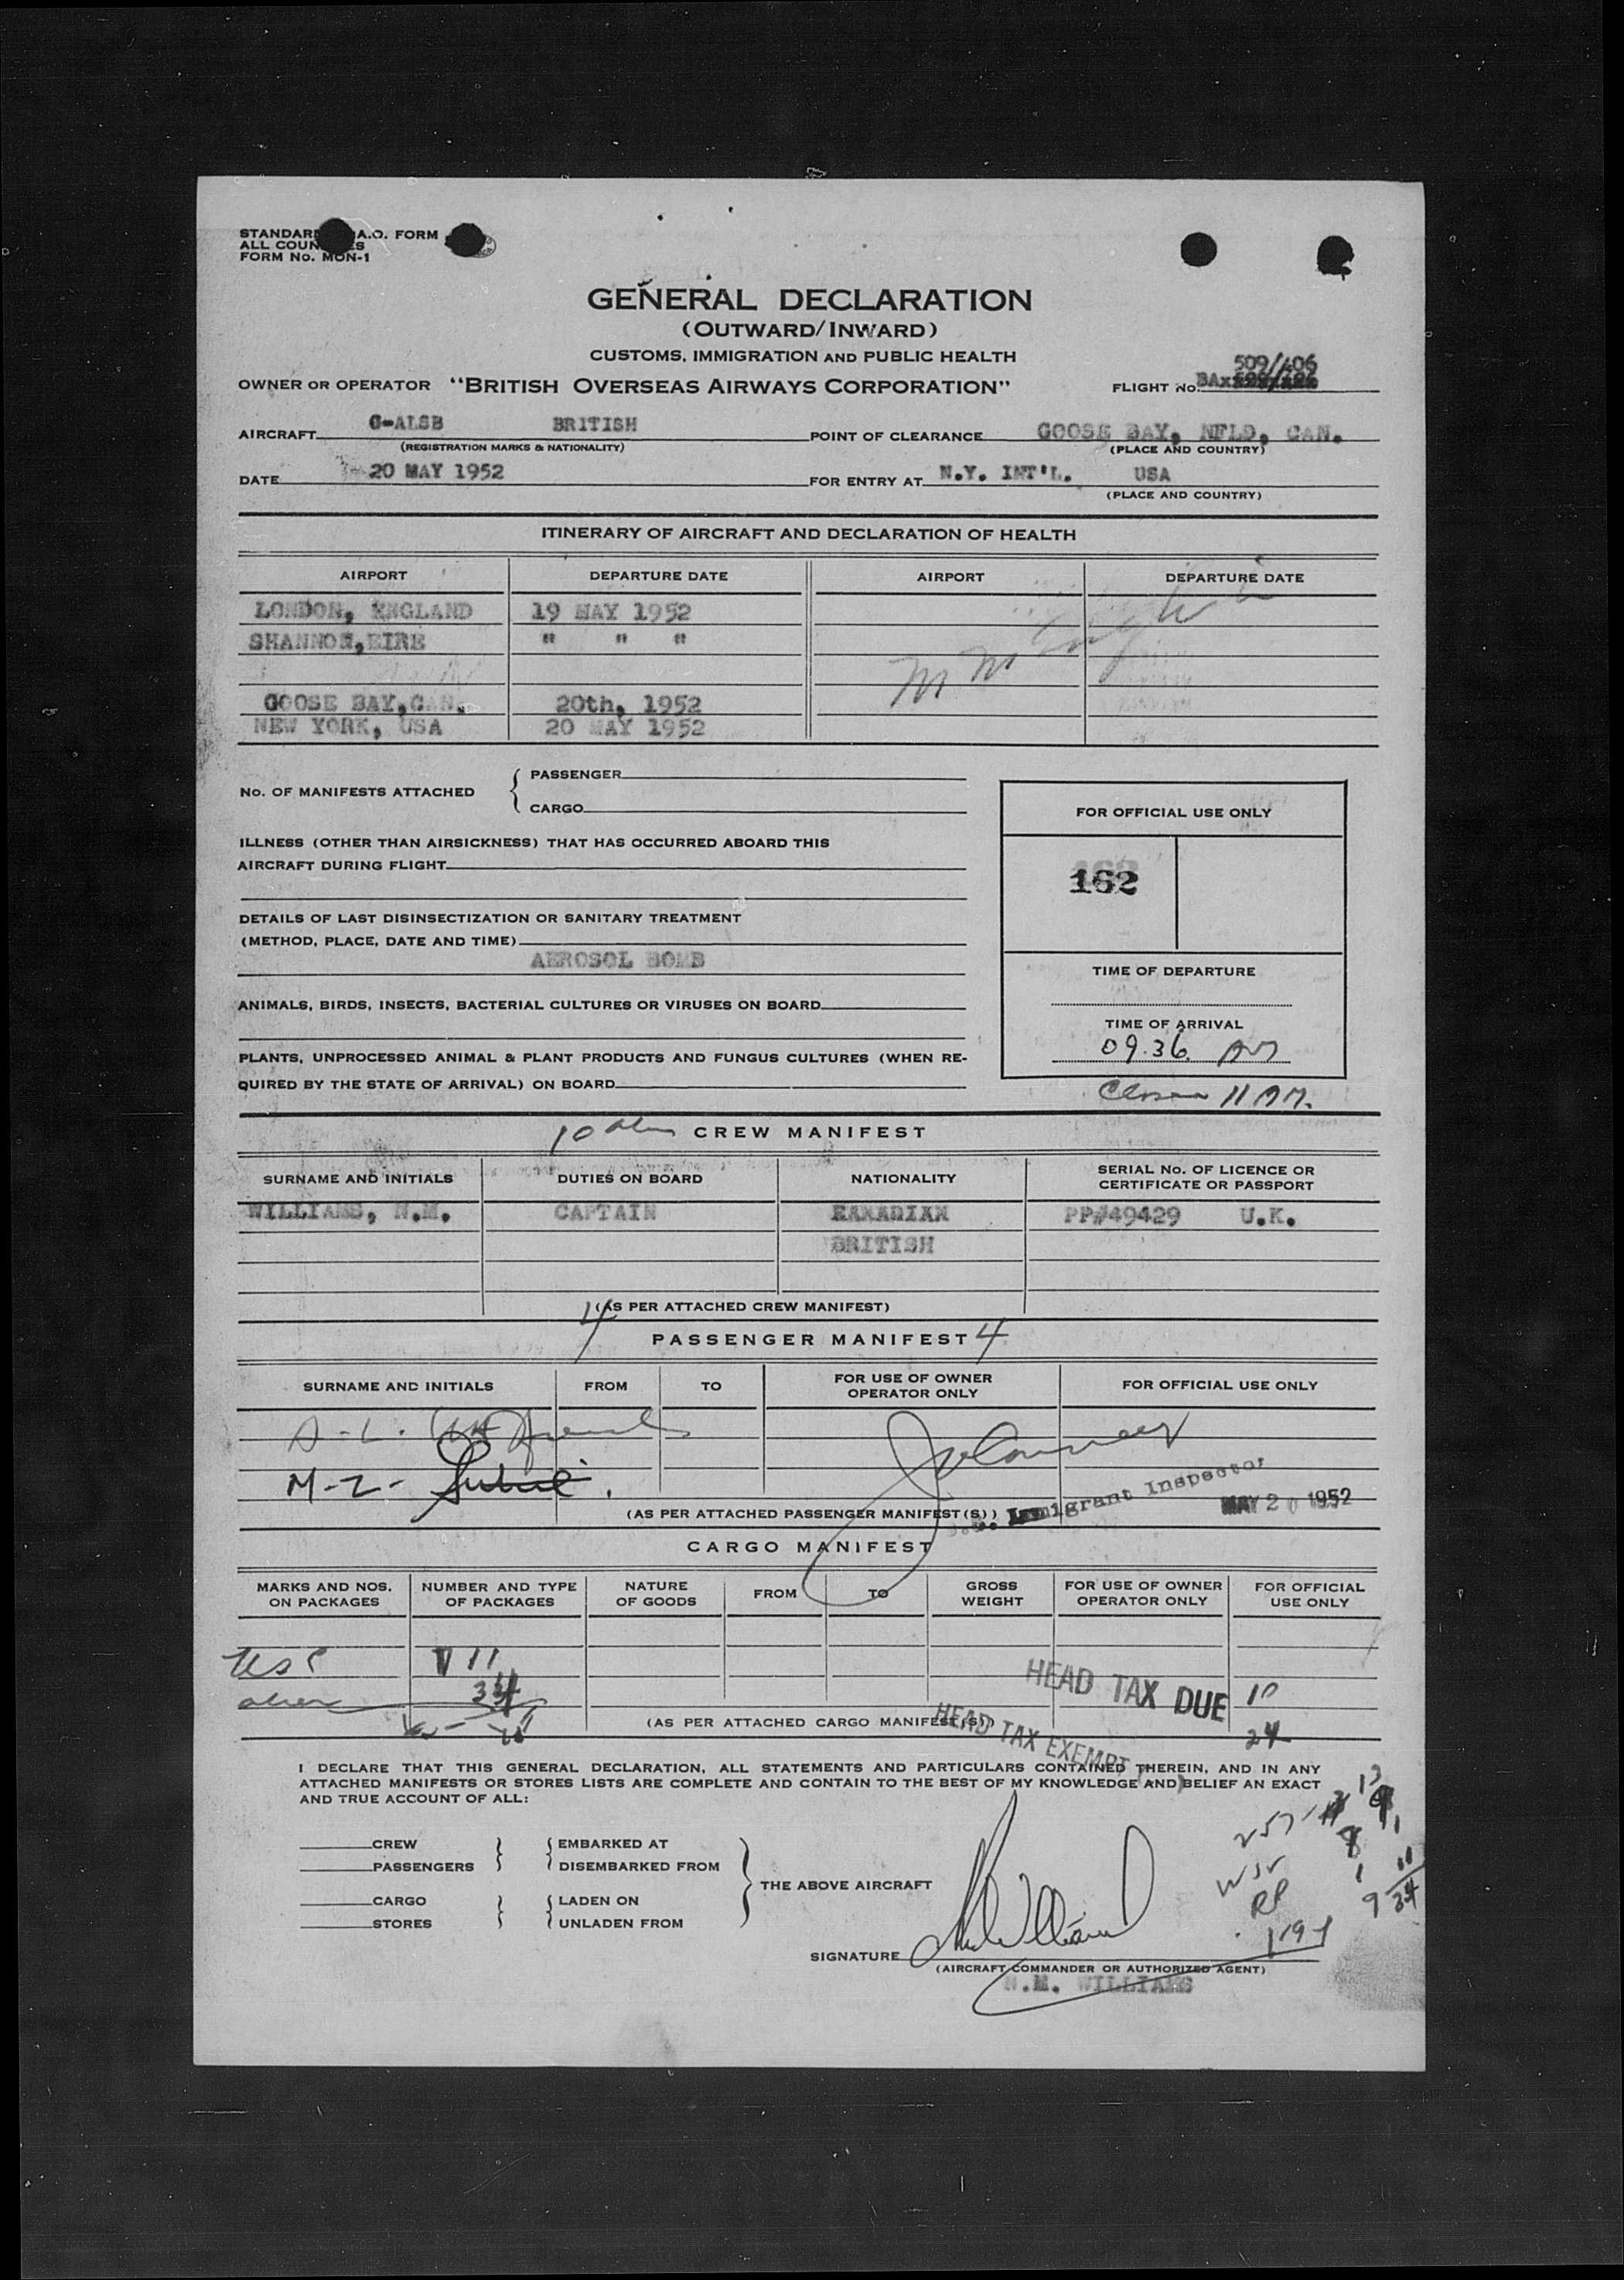 STANDARD A.O. FORM
ALL COUN ES
FORM No. MON-1
GENERAL DECLARATION
(OUTWARD/INWARD)
CUSTOMS, IMMIGRATION AND PUBLIC HEALTH
509/406
OWNER OR OPERATOR "BRITISH OVERSEAS AIRWAYS CORPORATION" FLIGHT No. BA
AIRCRAFT G-ALSB BRITISH POINT OF CLEARANCE GOOSE BAY, NFLD, CAN.
(REGISTRATION MARKS & NATIONALITY) (PLACE AND COUNTRY)
DATE 20 MAY 1952 FOR ENTRY AT N.Y. INT'L. USA
(PLACE AND COUNTRY)
ITINERARY OF AIRCRAFT AND DECLARATION OF HEALTH
AIRPORT DEPARTURE DATE AIRPORT DEPARTURE DATE
LONDON, ENGLAND 19 MAY 1952
SHANNON,EIRE " " "
GOOSE BAY,CAN. 20th, 1952
NEW YORK, USA 20 MAY 1952
No. OF MANIFESTS ATTACHED { PASSENGER
CARGO
FOR OFFICIAL USE ONLY
ILLNESS (OTHER THAN AIRSICKNESS) THAT HAS OCCURRED ABOARD THIS
AIRCRAFT DURING FLIGHT
162
DETAILS OF LAST DISINSECTIZATION OR SANITARY TREATMENT
(METHOD, PLACE, DATE AND TIME)
AEROSOL BOMB
TIME OF DEPARTURE
ANIMALS, BIRDS, INSECTS, BACTERIAL CULTURES OR VIRUSES ON BOARD
TIME OF ARRIVAL
09.36 AM
PLANTS, UNPROCESSED ANIMAL & PLANT PRODUCTS AND FUNGUS CULTURES (WHEN RE-
QUIRED BY THE STATE OF ARRIVAL) ON BOARD
11 AM.
10 CREW MANIFEST
SURNAME AND INITIALS DUTIES ON BOARD NATIONALITY SERIAL No. OF LICENCE OR
CERTIFICATE OR PASSPORT
WILLIAMS, N.M. CAPTAIN KANADIAN PP#49429 U.K.
BRITISH
(AS PER ATTACHED CREW MANIFEST)
4 PASSENGER MANIFEST 4
SURNAME AND INITIALS FROM TO FOR USE OF OWNER
OPERATOR ONLY FOR OFFICIAL USE ONLY
Immigrant Inspector
MAY 20 1952
(AS PER ATTACHED PASSENGER MANIFEST(S))
CARGO MANIFEST
MARKS AND NOS.
ON PACKAGES NUMBER AND TYPE
OF PACKAGES NATURE
OF GOODS FROM TO GROSS
WEIGHT FOR USE OF OWNER
OPERATOR ONLY FOR OFFICIAL
USE ONLY
USC 11
34
HEAD TAX DUE 10
(AS PER ATTACHED CARGO MANIFEST(S))
HEAD TAX EXEMPT 24
I DECLARE THAT THIS GENERAL DECLARATION, ALL STATEMENTS AND PARTICULARS CONTAINED THEREIN, AND IN ANY
ATTACHED MANIFESTS OR STORES LISTS ARE COMPLETE AND CONTAIN TO THE BEST OF MY KNOWLEDGE AND BELIEF AN EXACT
AND TRUE ACCOUNT OF ALL:
CREW
PASSENGERS
CARGO
STORES
EMBARKED AT
DISEMBARKED FROM
LADEN ON
UNLADEN FROM
THE ABOVE ABOVE AIRCRAFT
SIGNATURE
(AIRCRAFT COMMANDER OR AUTHORIZED AGENT)
N.M. WILLIAMS